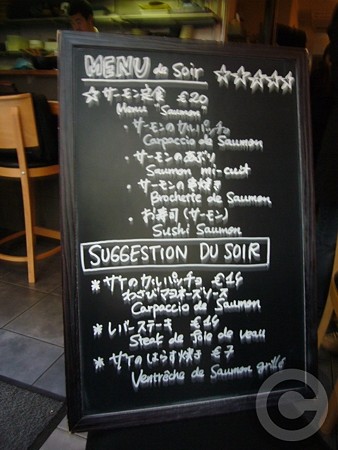 MENU de Soir ☆☆☆☆☆
☆ サーモン定食 €20
Menu "Saumon"
・サーモンのカルパッチョ
Carpaccio de Saumon
・サーモンのあぶり
Saumon mi-cuit
・サーモンの串焼き
Brochette de Saumon
・お寿司(サーモン)
Sushi Saumon
SUGGESTION DU SOIR
* サケのカルパッチョ €14
わさびマヨネーズソース
Carpaccio de Saumon
* レバーステーキ €14
Steak de foie de veau
* サケのはらす焼き €7
Ventrèche de Saumon grillé
©